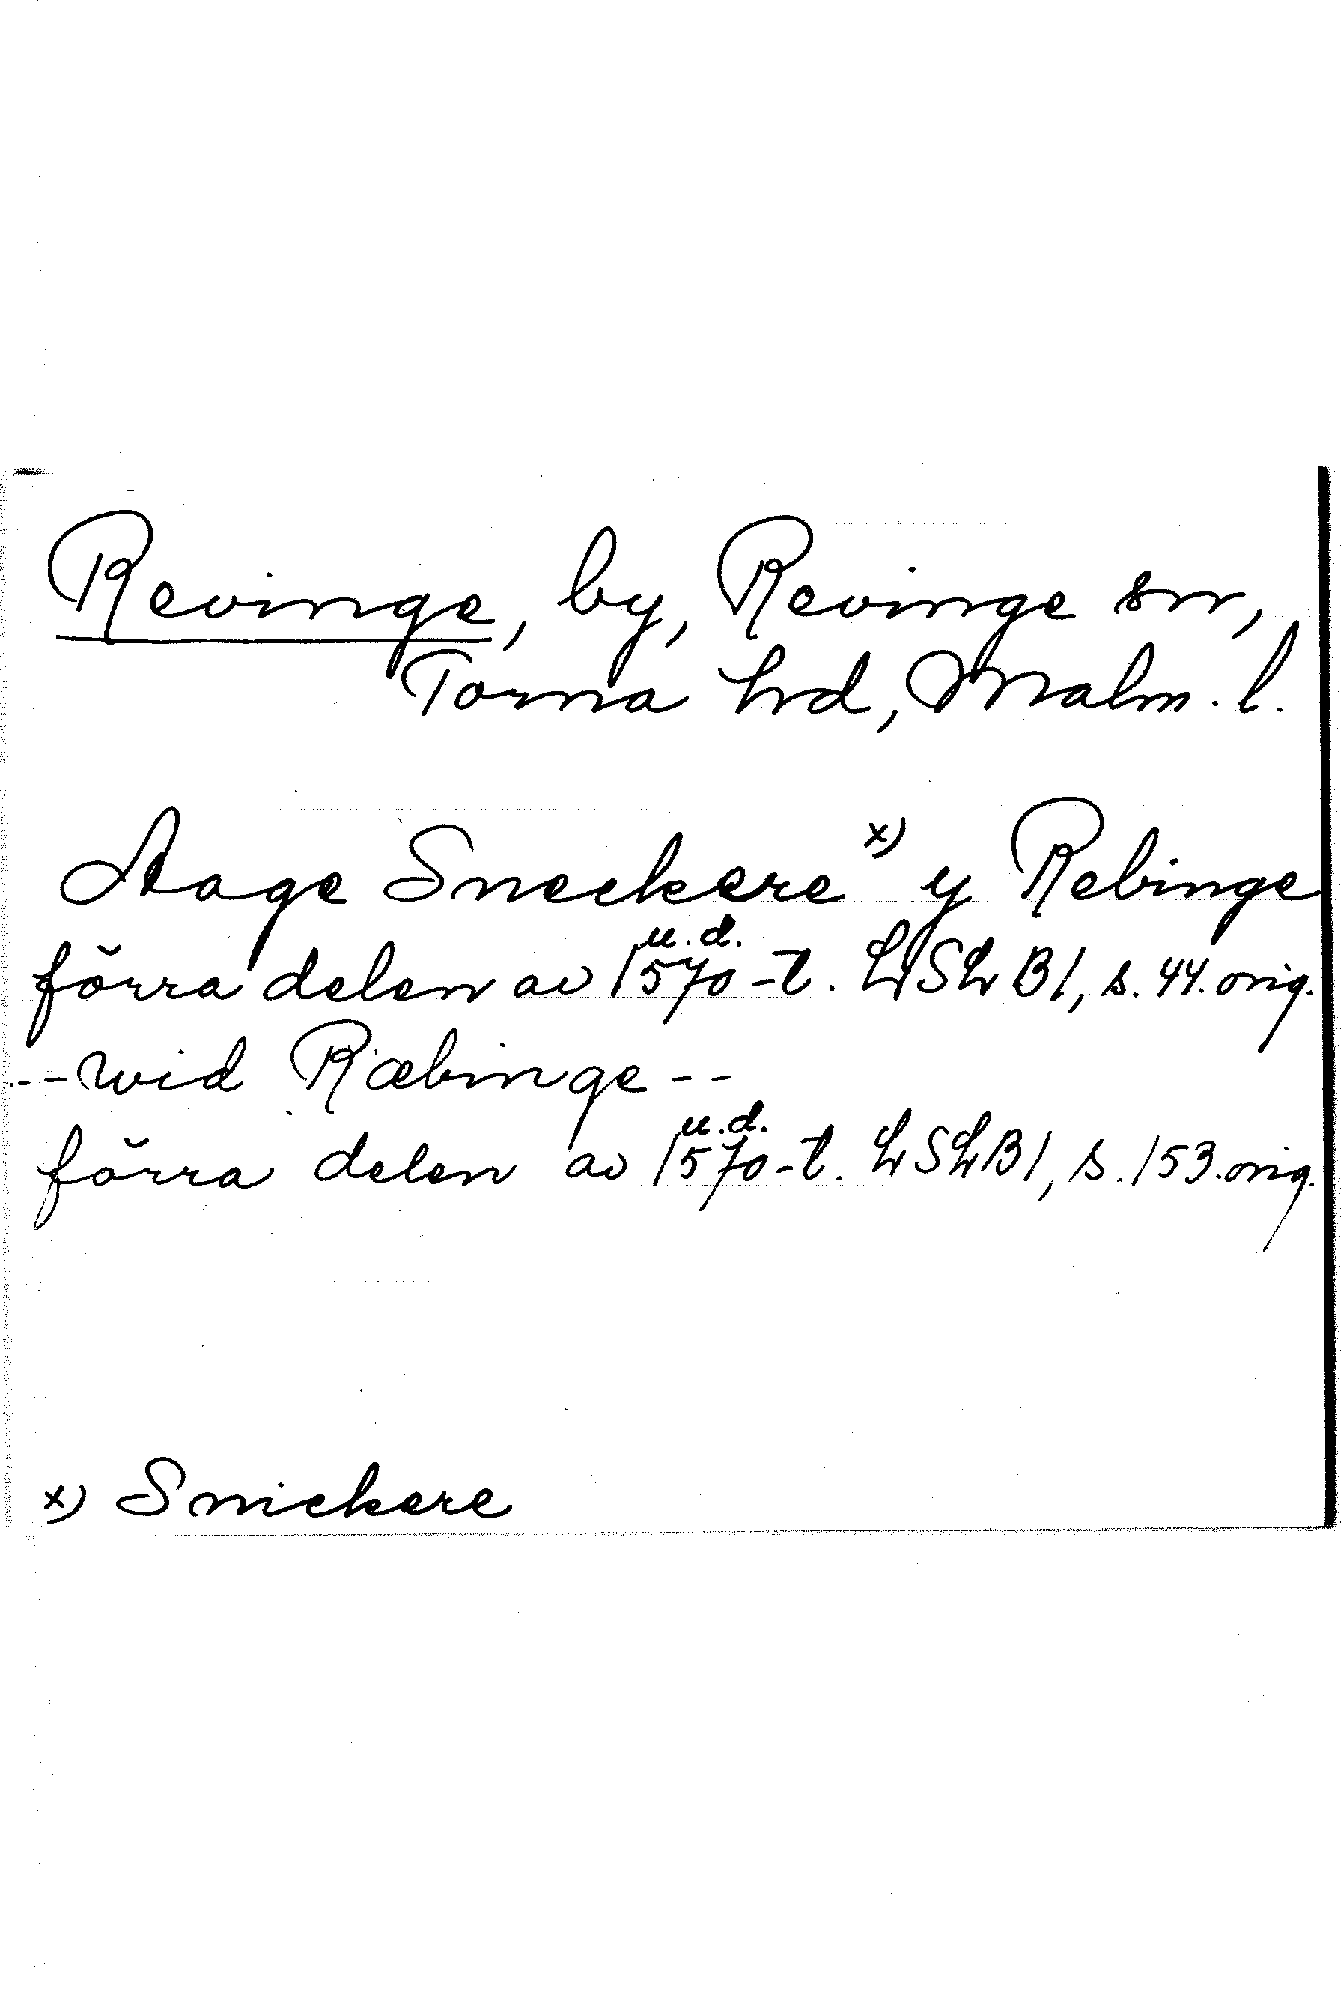 Revinge, by, Revinge sn,
Torna hd, Malm. l.
Aage Sneckere x) y Rebinge
u.d.
förra delen av 1570-t. LSLB1, s. 44. orig.
--wid Ræbinge--
u.d.
förra delen av 1570-t. LSLB1, s. 153. orig.
x) Snickere